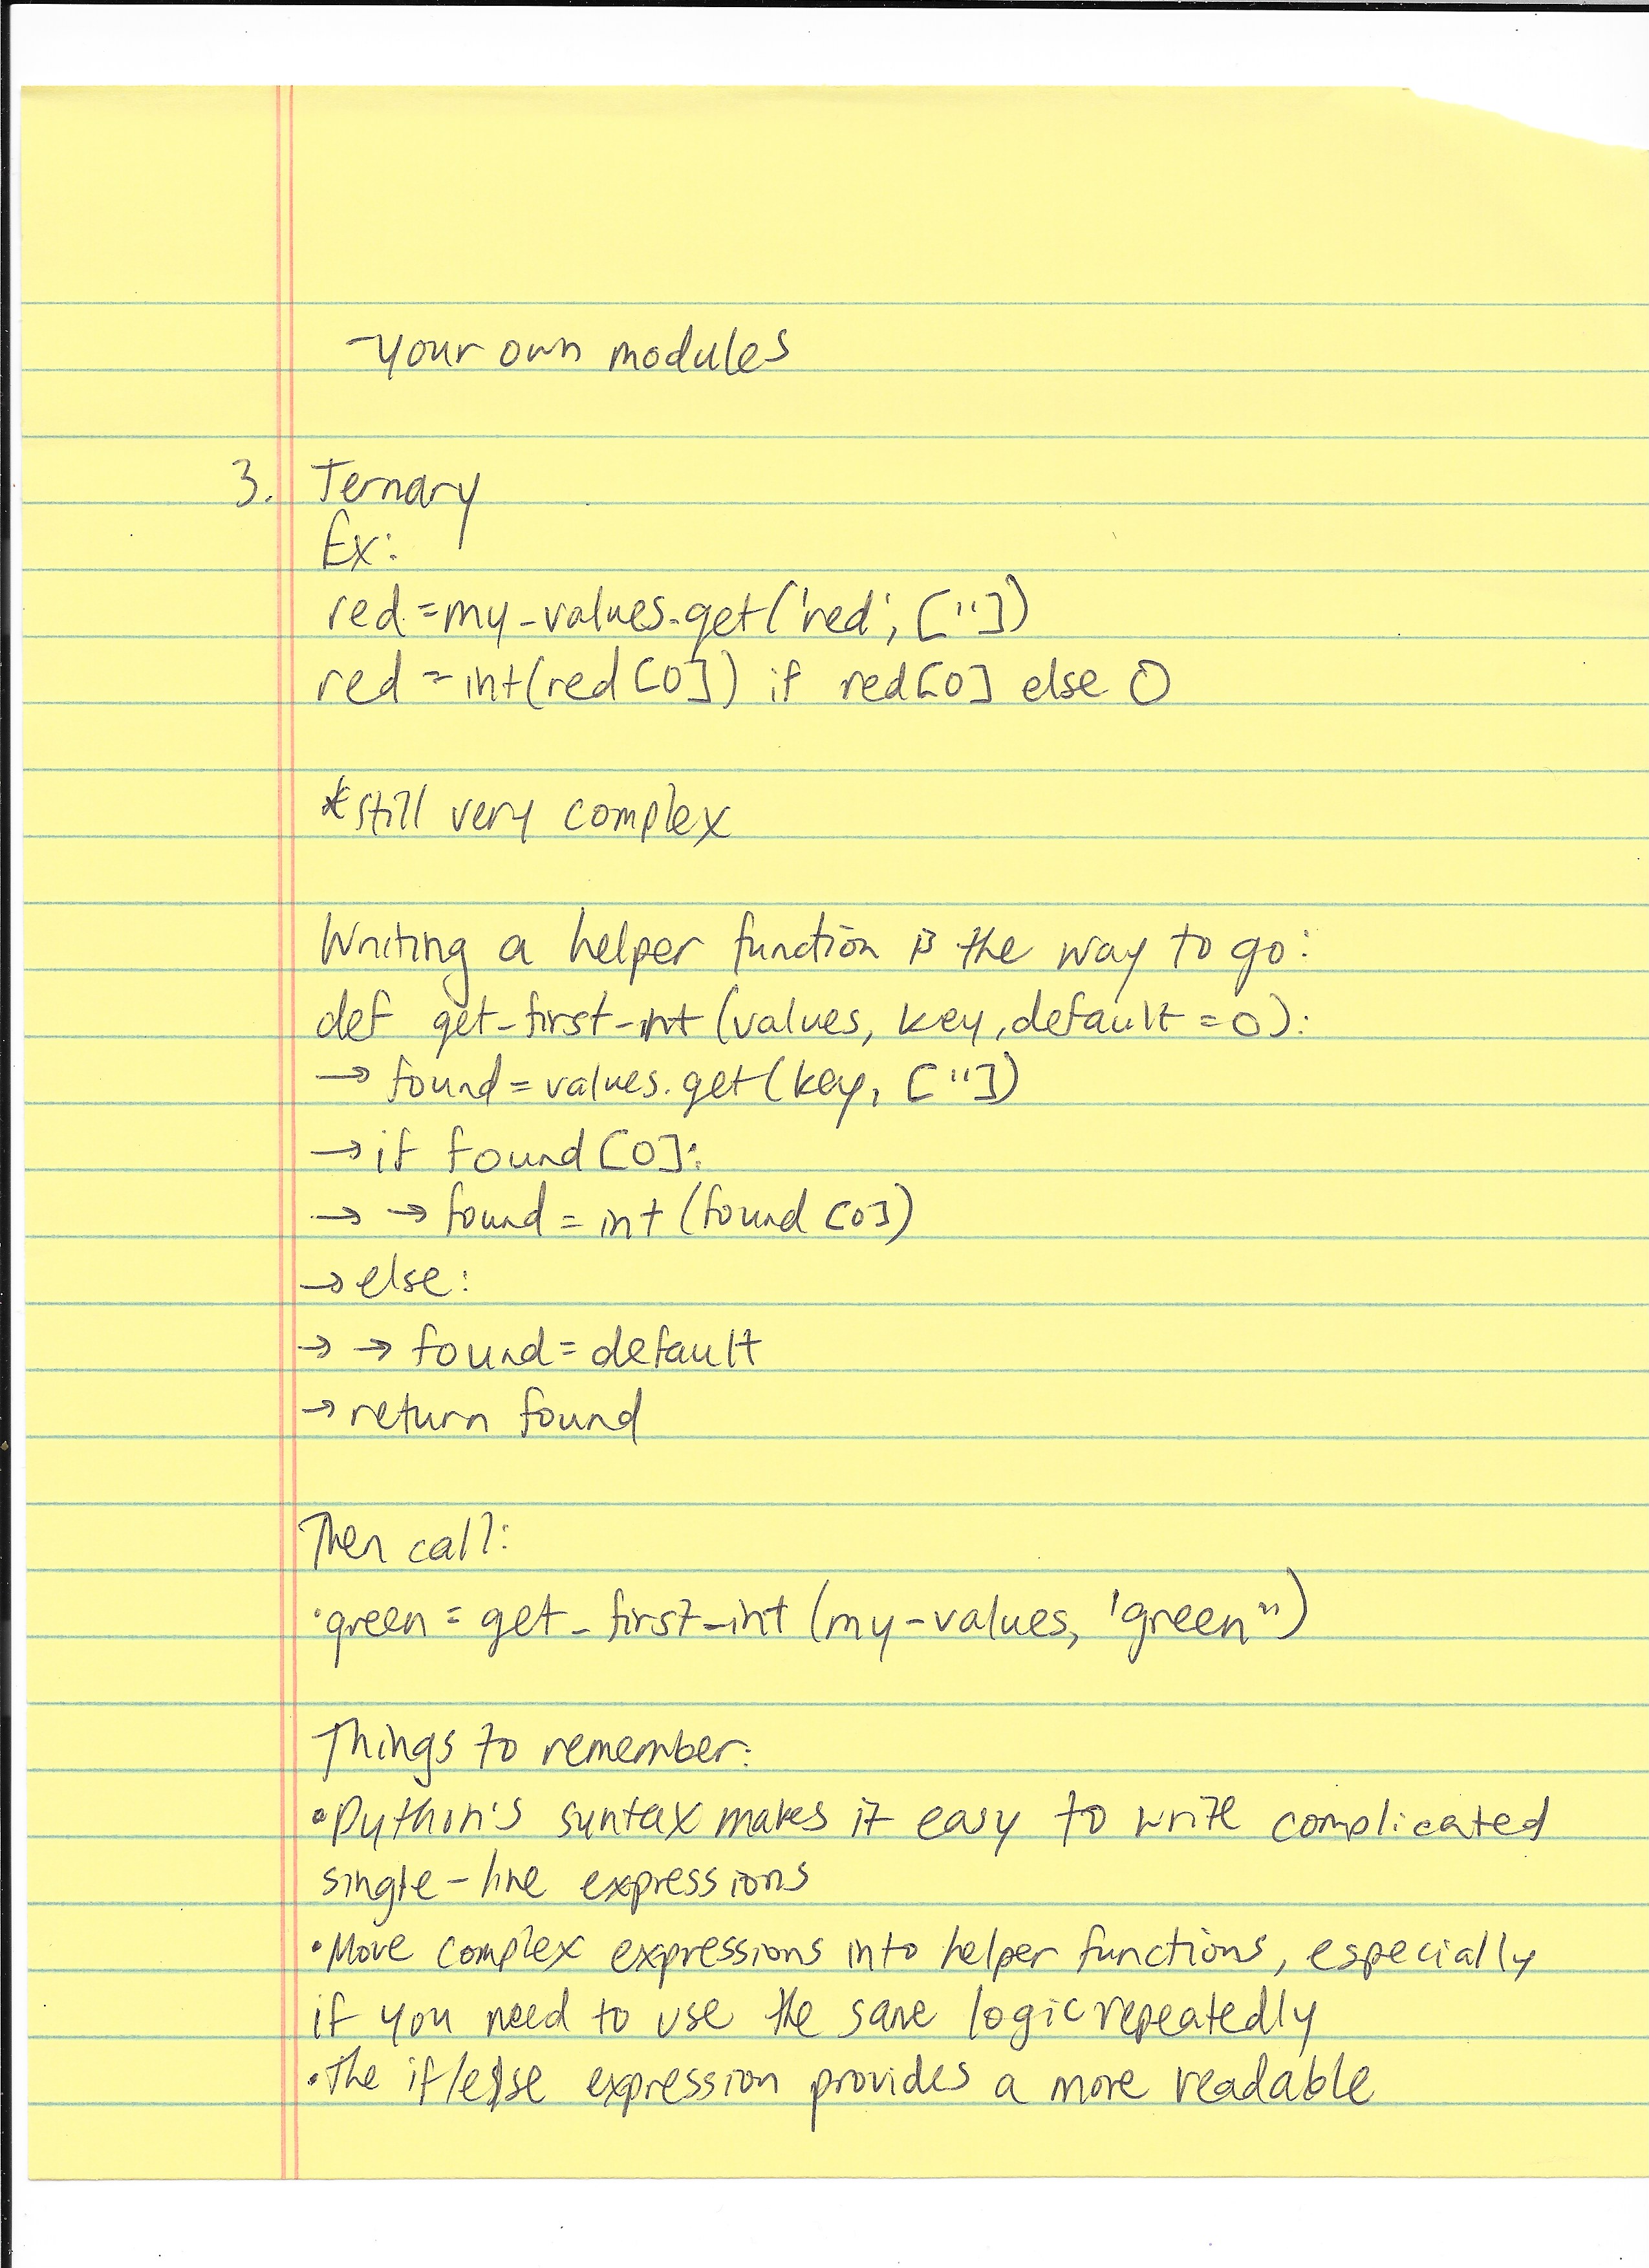 -your own modules
3. Ternary
Ex:
red = my_values.get('red', [''])
red = int(red[0]) if red[0] else 0
*still very complex
Writing a helper function is the way to go:
def get_first_int(values, key, default=0):
→ found = values.get(key, [''])
→ if found[0]:
→ → found = int(found[0])
→ else:
→ → found = default
→ return found
Then call:
•green = get_first_int(my_values, 'green'')
Things to remember:
•Python's syntax makes it easy to write complicated
single-line expressions
•Move complex expressions into helper functions, especially
if you need to use the same logic repeatedly
•The if/else expression provides a more readable